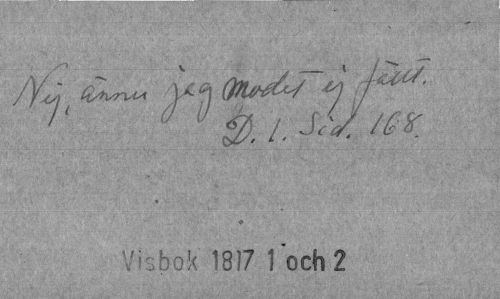 Nej, ännu jag modet ej fätt.
D. 1. Sid. 168.
Visbok 1817 1 och 2